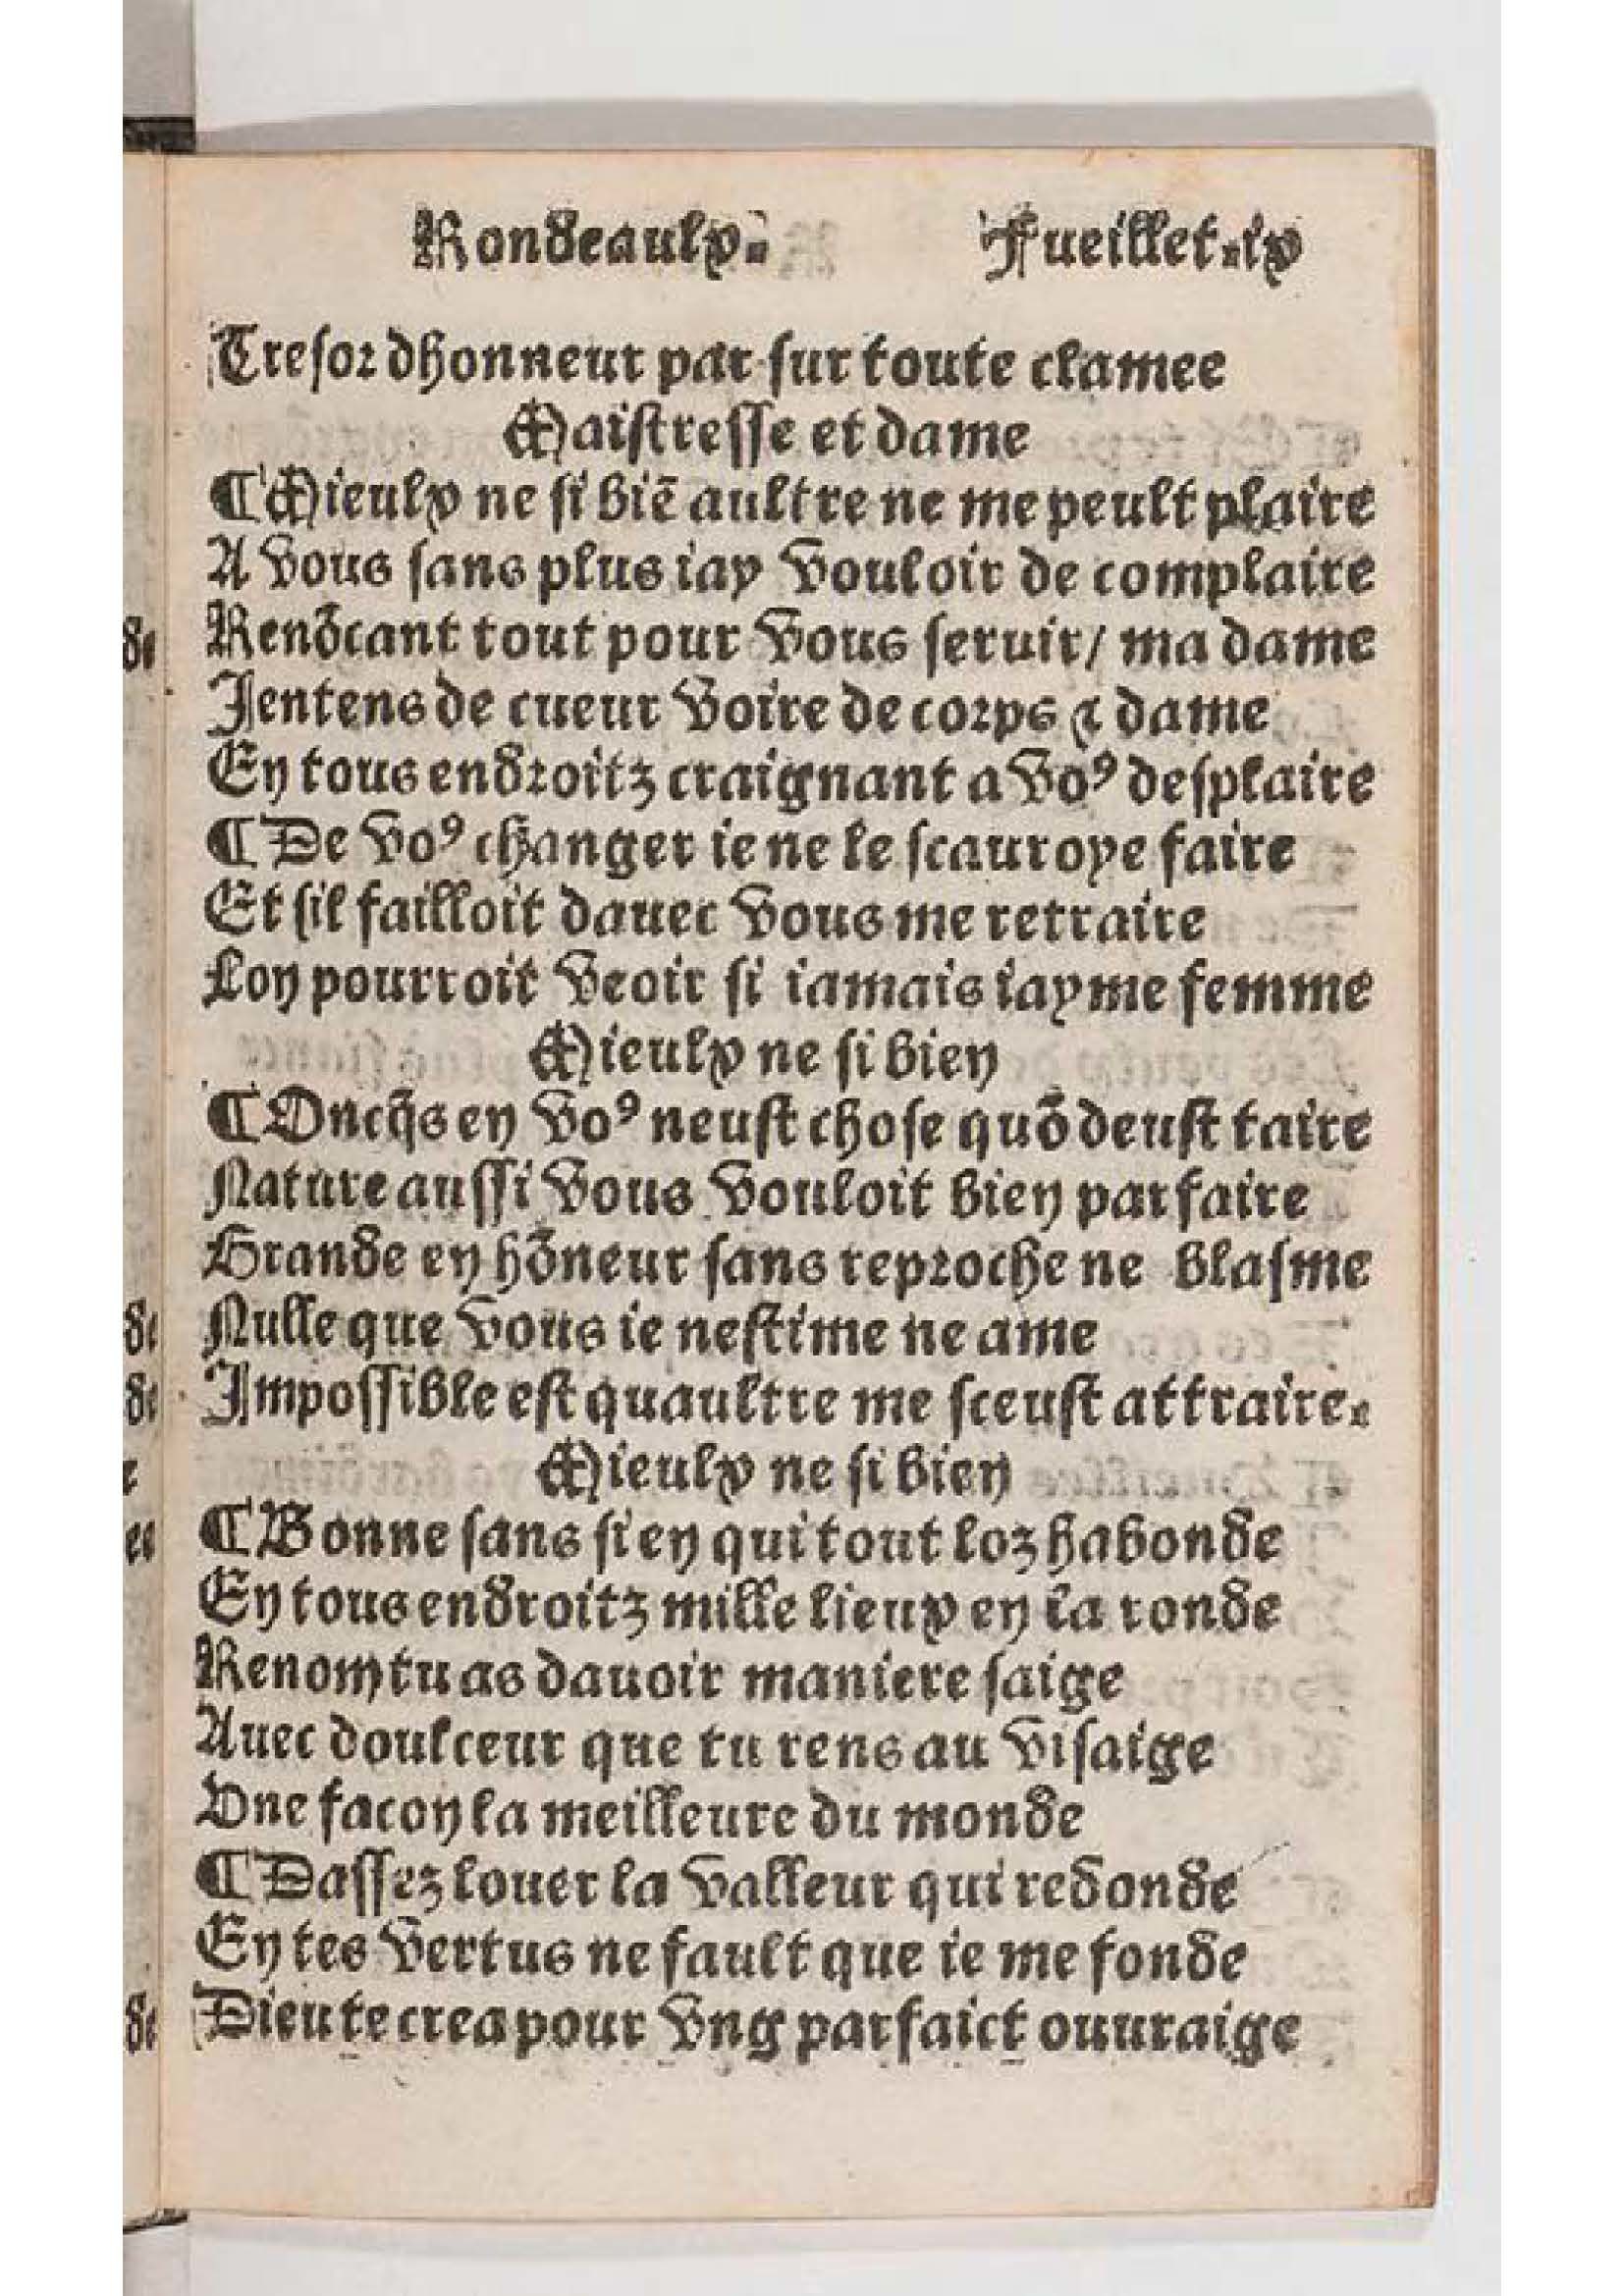 Rondeaulx. Fueillet.ix
Tresor dhonneur par sur toute clamee
Maistresse et dame
¶Mieulx ne si biē aultre ne me peult plaire
A vous sans plus iay vouloir de complaire
Renōcant tout pour vous seruir/ ma dame
Jentens de cueur voire de corps & dame
En tous endroitz craignant a voꝰ desplaire
¶De voꝰ changer ie ne le scauroye faire
Et sil failloit dauec vous me retraire
Lon pourroit veoir si iamais iayme femme
Mieulx ne si bien
¶Oncq̄s en voꝰ neust chose quō deust taire
Nature aussi vous vouloit bien parfaire
Grande en hōneur sans reproche ne blasme
Nulle que vous ie nestime ne ame
Impossible est quaultre me sceust attraire.
Mieulx ne si bien
¶Bonne sans si en qui tout loz habonde
En tous endroitz mille lieux en la ronde
Renom tu as dauoir maniere saige
Auec doulceur que tu rens au visaige
Une facon la meilleure du monde
¶Dassez louer la valleur qui redonde
En tes vertus ne fault que ie me fonde
Dieu te crea pour vng parfaict ouuraige